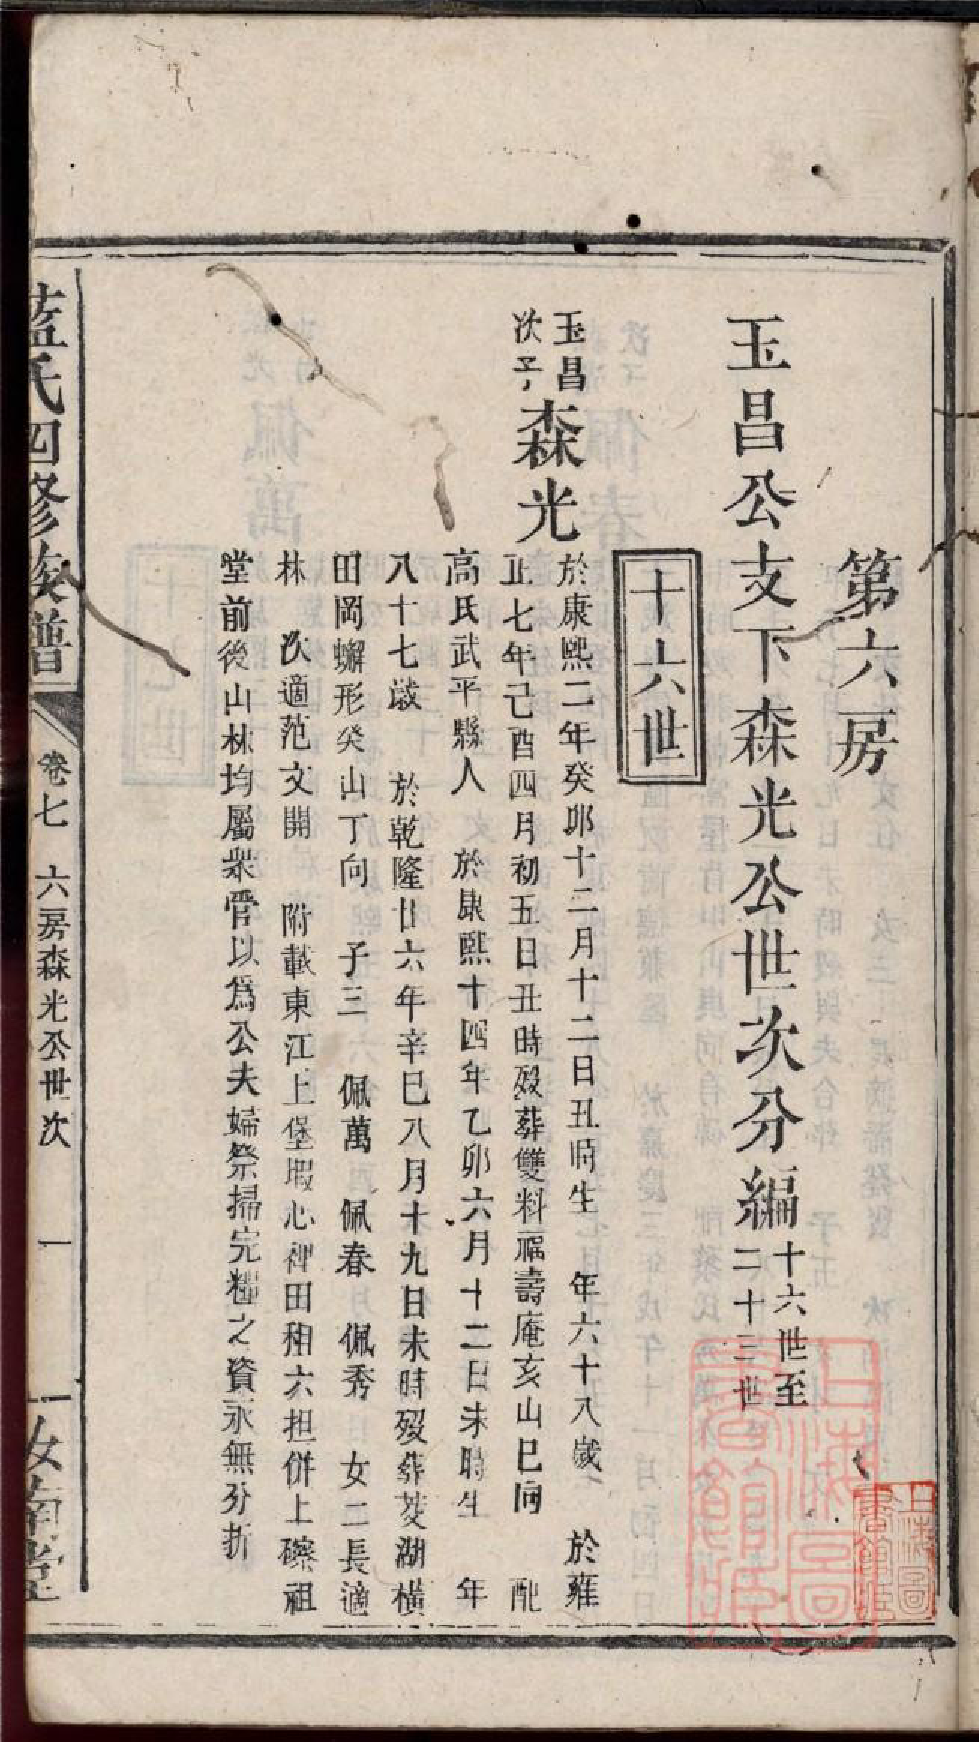 第六房
玉昌公支下森光公世次分編
十六世至
二十三世
十六世
玉昌
次子
森光
於康熙二年癸卯十二月十二日丑時生 年六十八歲 於雍
正七年己酉四月初五日丑時歿葬雙料福壽庵亥山巳向 配
高氏武平縣人 於康熙十四年乙卯六月十二日未時生 年
八十七歲 於乾隆廿六年辛巳八月十九日未時歿葬芰湖橫
田岡蠏形癸山丁向 子三 佩萬 佩春 佩秀 女二長適
林 次適范文開 附載東江上堡坵心神田租六担併上磜祖
堂前後山林均屬衆管以爲公夫婦祭掃完粮之資永無分折
藍氏四修族譜
卷七 六房森光公世次
一
汝南堂
上海圖書館藏
上海圖書館藏